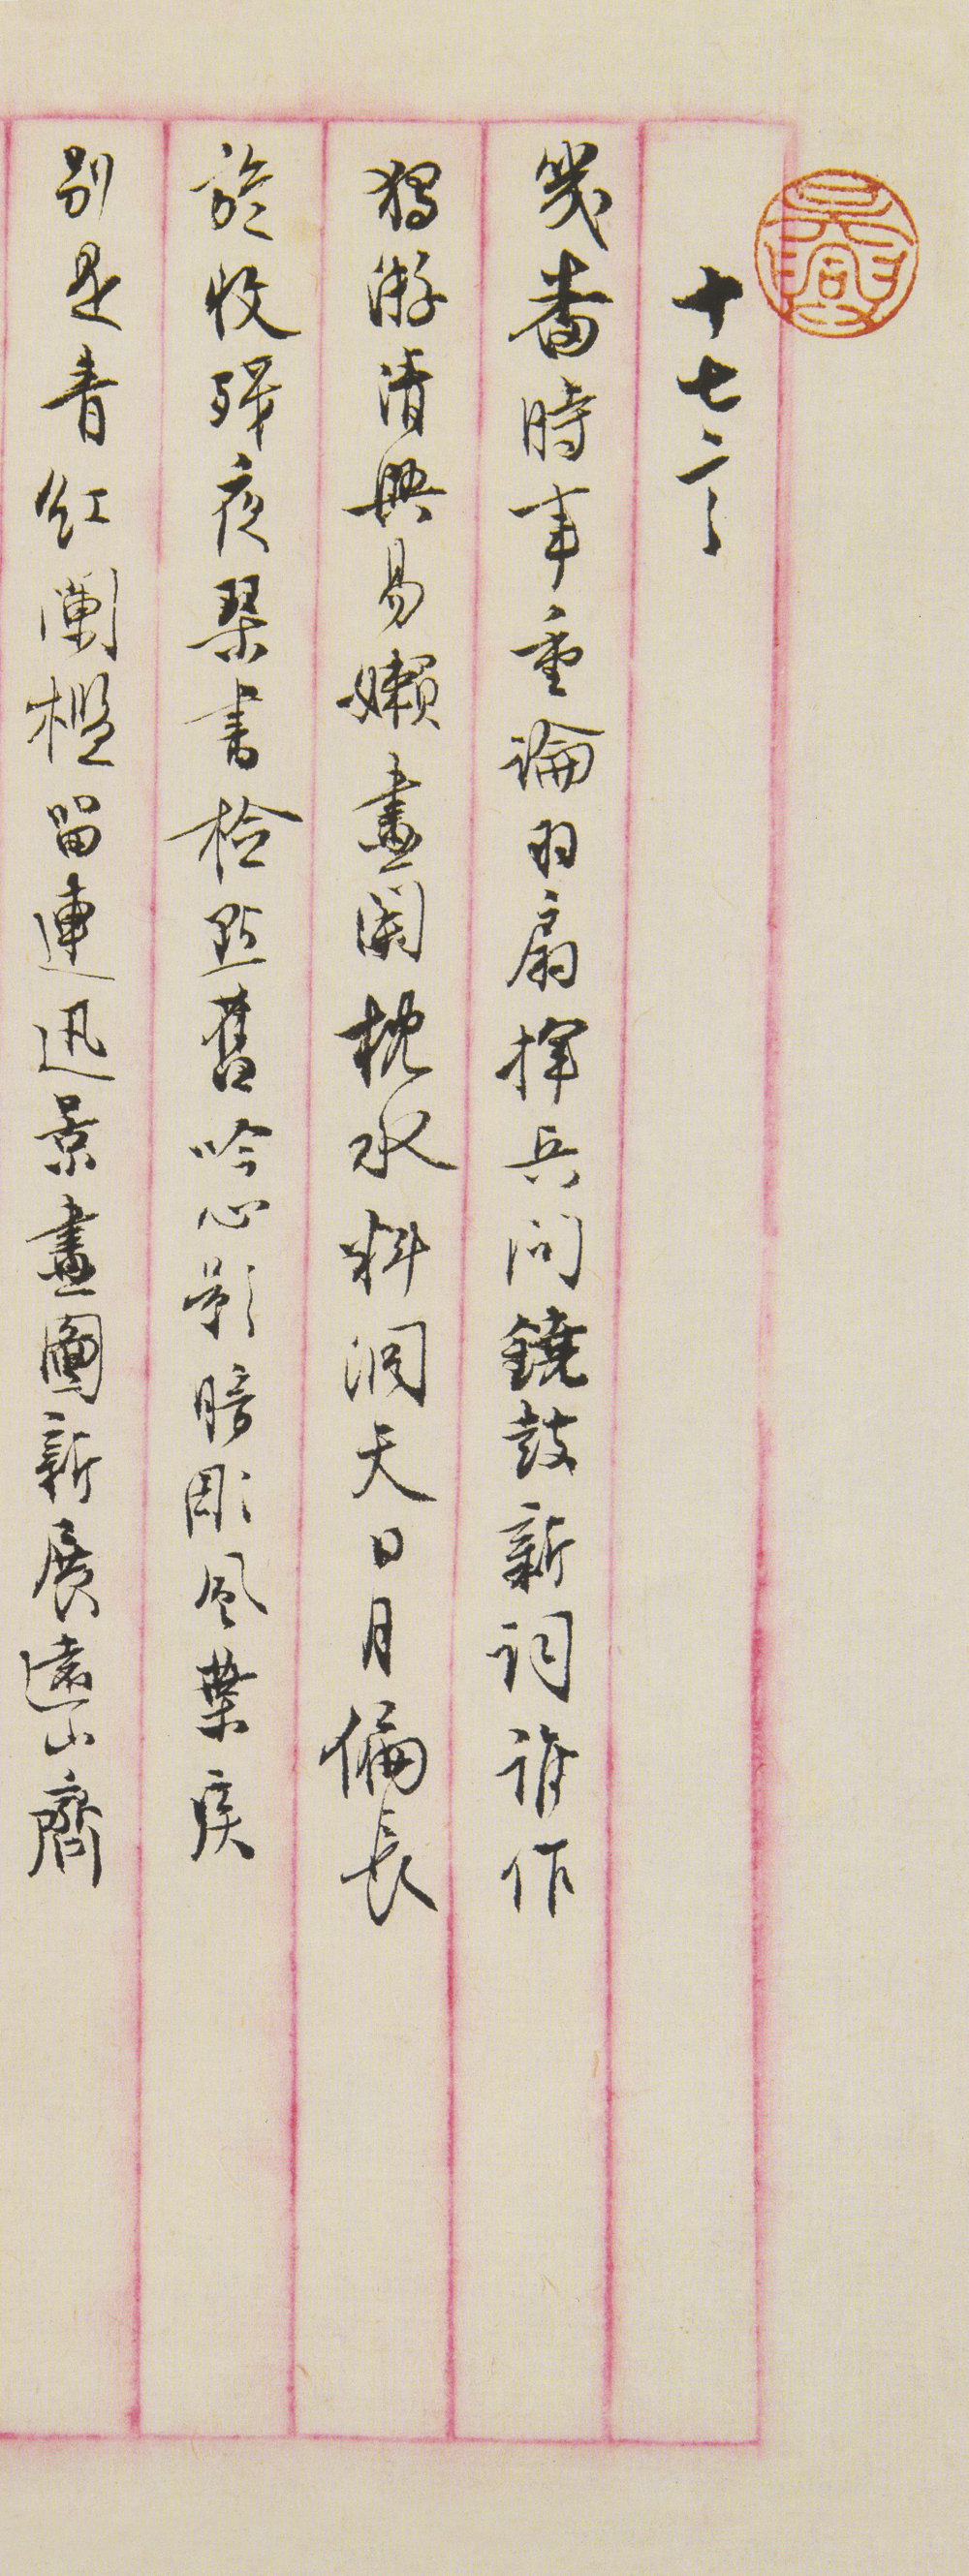 十七二
幾番時事重論羽扇揮兵問鐃鼓新詞誰作
獨游清興易嬾畫闌枕水料洞天日月偏長
於收殘夜琴書檢點舊吟心影暗彫風葉
別是青紅闌檻留連迅景畫圖新展遠山齊